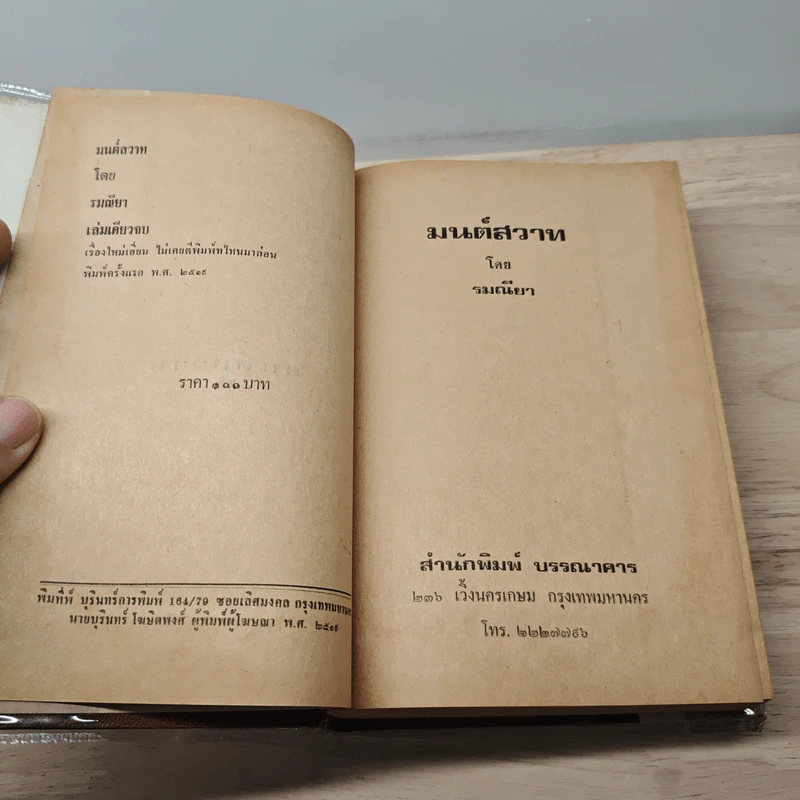 มนต์สวาท
โดย
รมณียา
เล่มเดียวจบ
เรื่องใหม่เอี่ยม ไม่เคยตีพิมพ์ที่ไหนมาก่อน
พิมพ์ครั้งแรก พ.ศ. ๒๕๑๙
ราคา ๑๐๐ บาท
พิมพ์ที่ บุรินทร์การพิมพ์ 164/79 ซอยเลิศมงคล กรุงเทพมหานคร
นายบุรินทร์ โฆษิตพงศ์ ผู้พิมพ์ผู้โฆษณา พ.ศ. ๒๕๑๙
มนต์สวาท
โดย
รมณียา
สำนักพิมพ์ บรรณาคาร
๒๓๖ เวิ้งนครเกษม กรุงเทพมหานคร
โทร. ๒๒๒๗๗๙๖